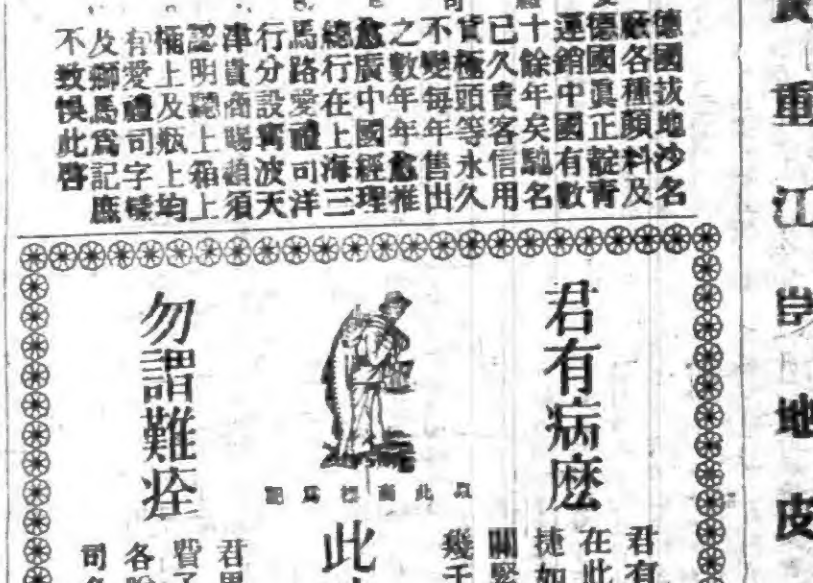 重江岸地皮
德國拔地沙名
廠各種顏料及
德國眞正靛靑
運銷中國有數
十餘年矣馳名
已久貴客信用
貨極頭等永久
不變每年售出
之數年年愈推
愈廣中國經理
總行在上海三
馬路愛禮司洋
行分設寗波天
津貴商賜顧須
認明聽上箱上
桶上及瓶上均
有愛禮司字樣
及獅馬爲記庶
不致悞此啓
君有病麽
以此商標爲記
勿謂難痊
君有
在此
捷如
關緊
幾千
此
君
費了
各
司